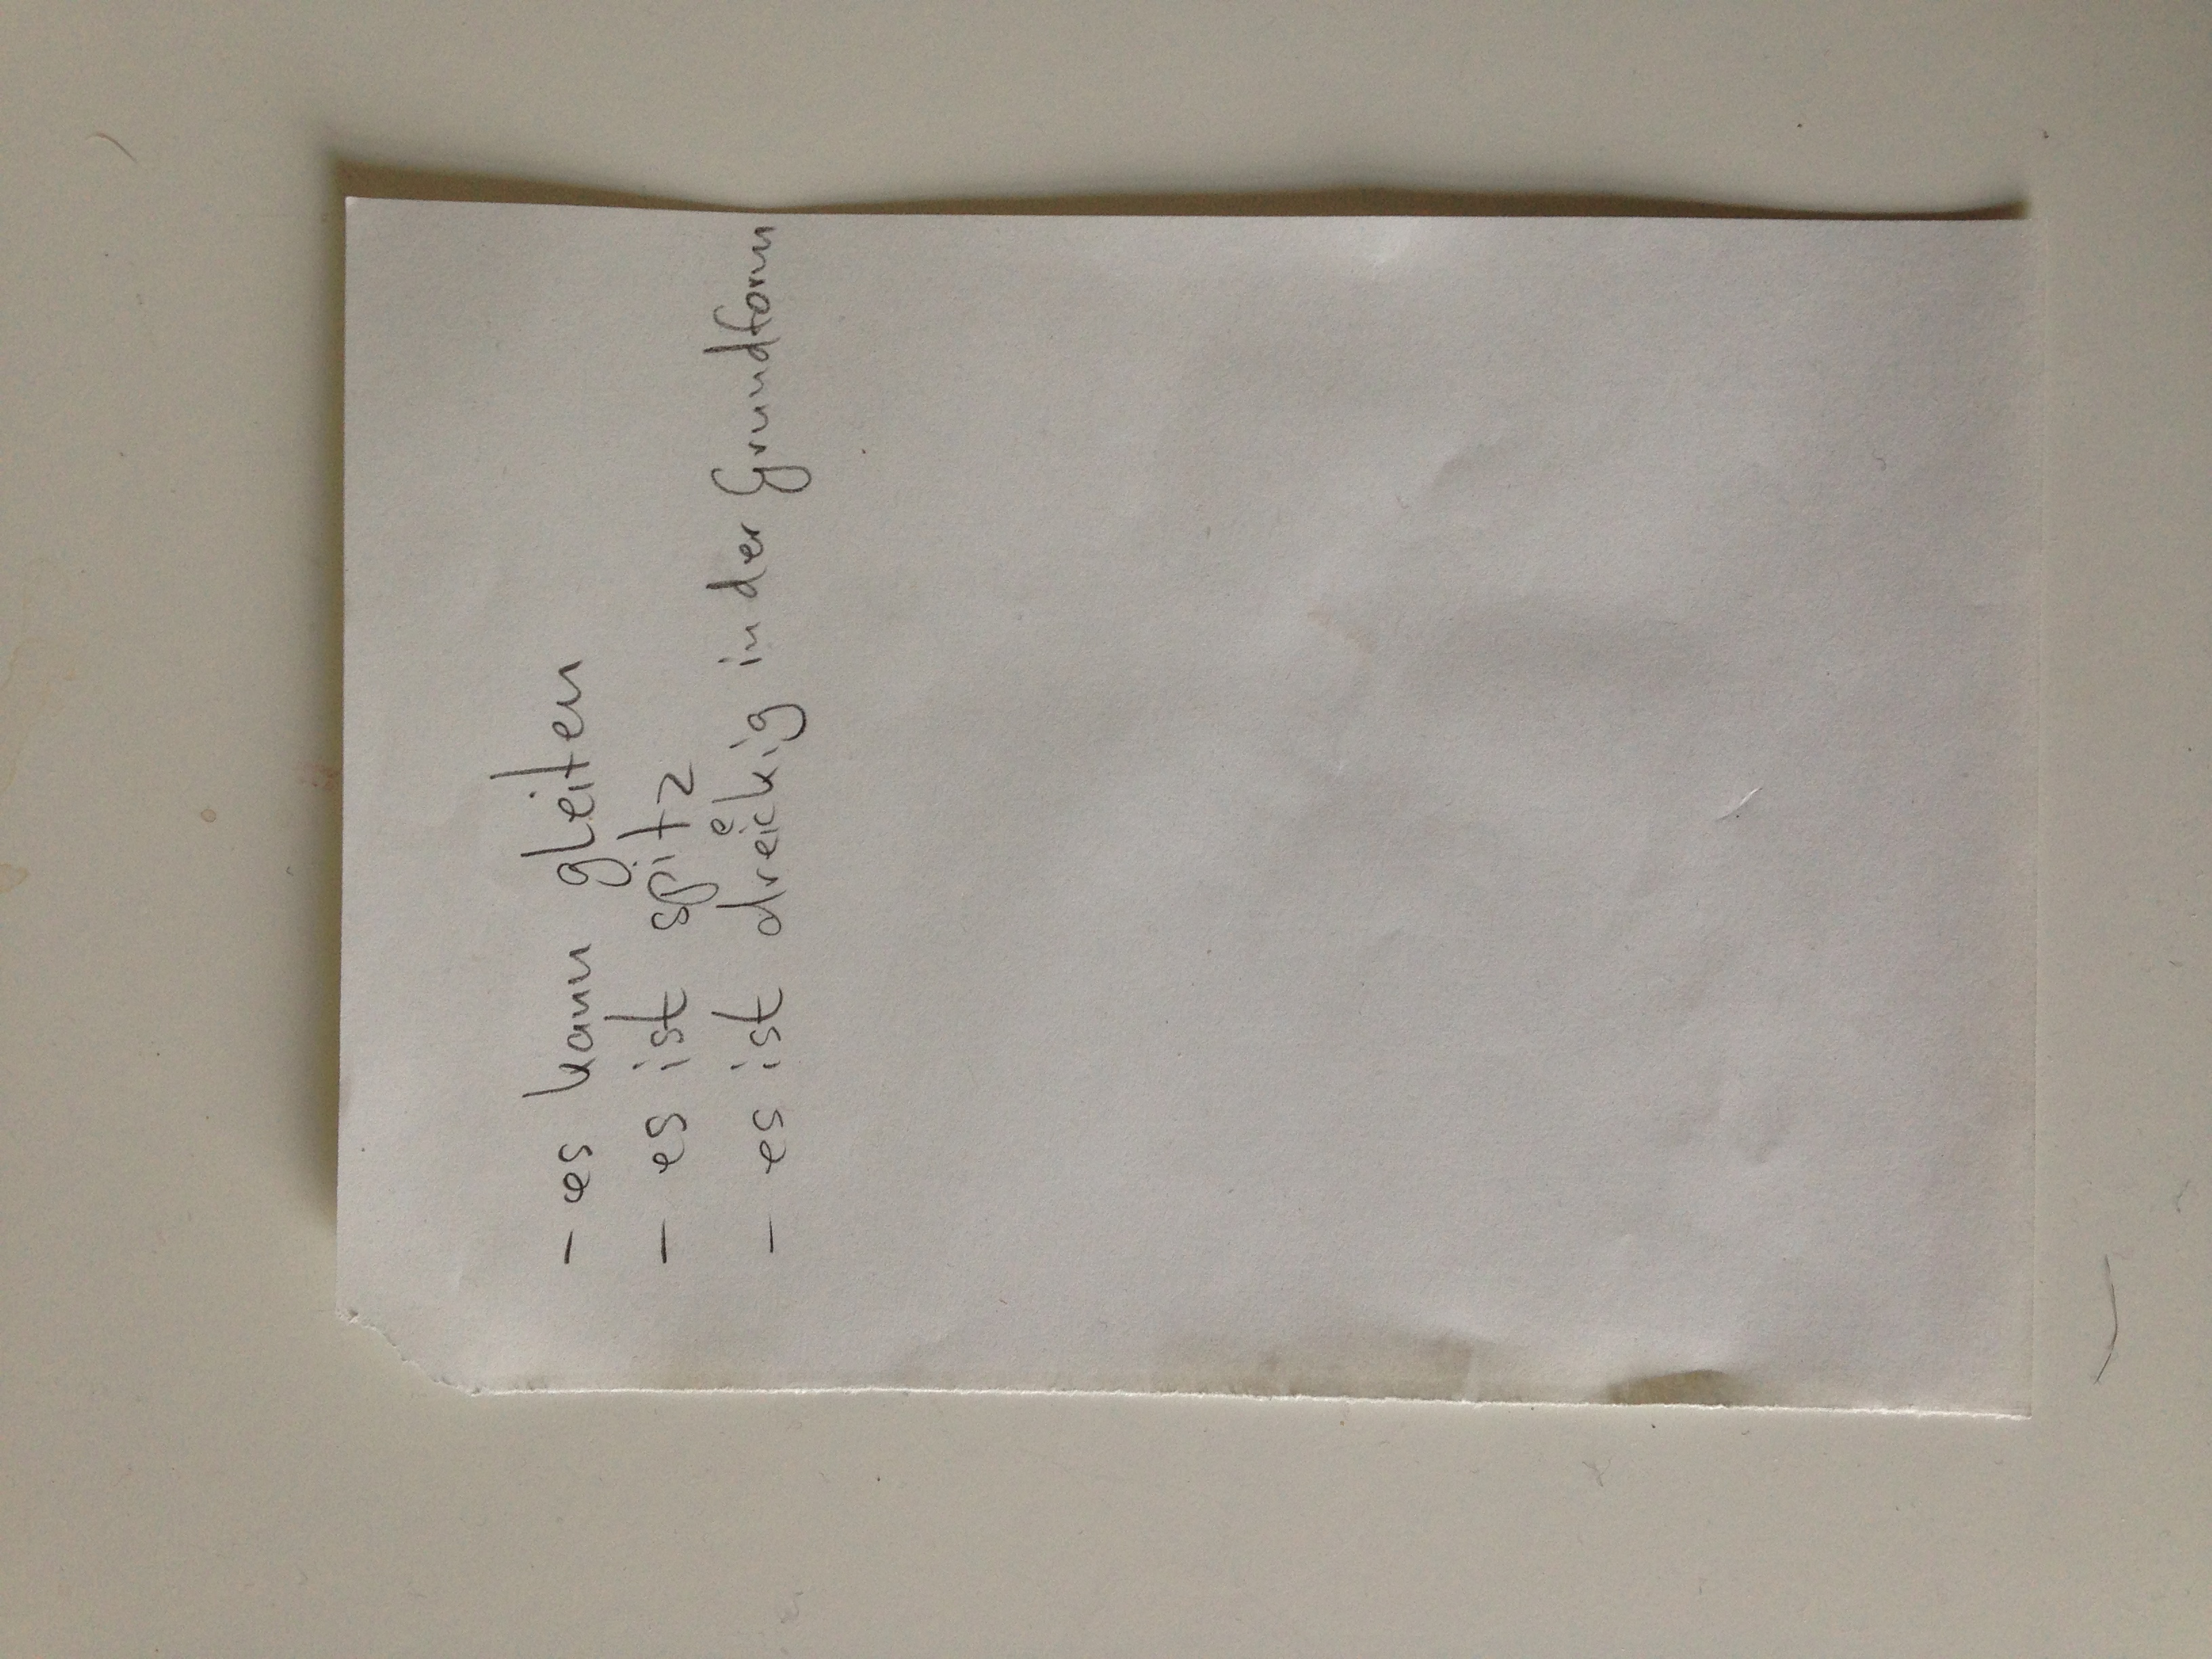 - es kann gleiten
- es ist spitz
- es ist dreieckig in der Grundform